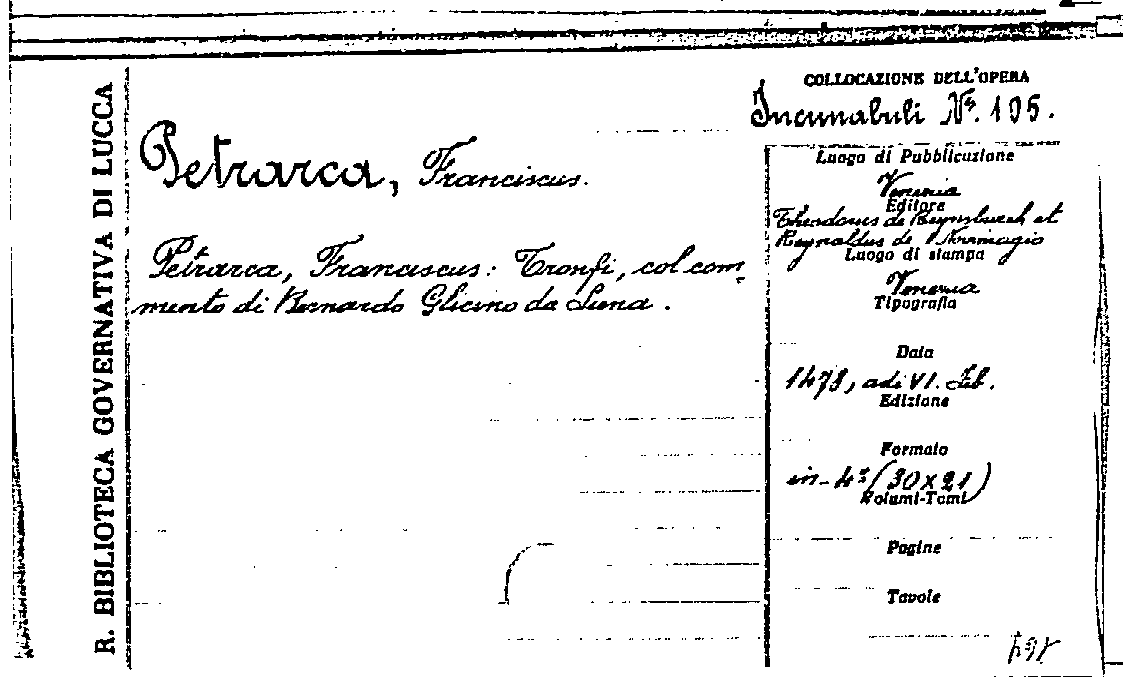 R. BIBLIOTECA GOVERNATIVA DI LUCCA
COLLOCAZIONE DELL'OPERA
Incunabuli Nº. 105.
Petrarca, Franciscus.
Petrarca, Franciscus: Tronfi, col com-
mento di Bernardo Glicino da Siena.
Luogo di Pubblicazione
Venezia
Editore
Theodorus de Reynsburch et
Reynaldus de Novimagio
Luogo di stampa
Venezia
Tipografia
Data
1478, adi VI. Feb.
Edizione
Formato
in-4º (30x21)
Volumi-Tomi
Pagine
Tavole